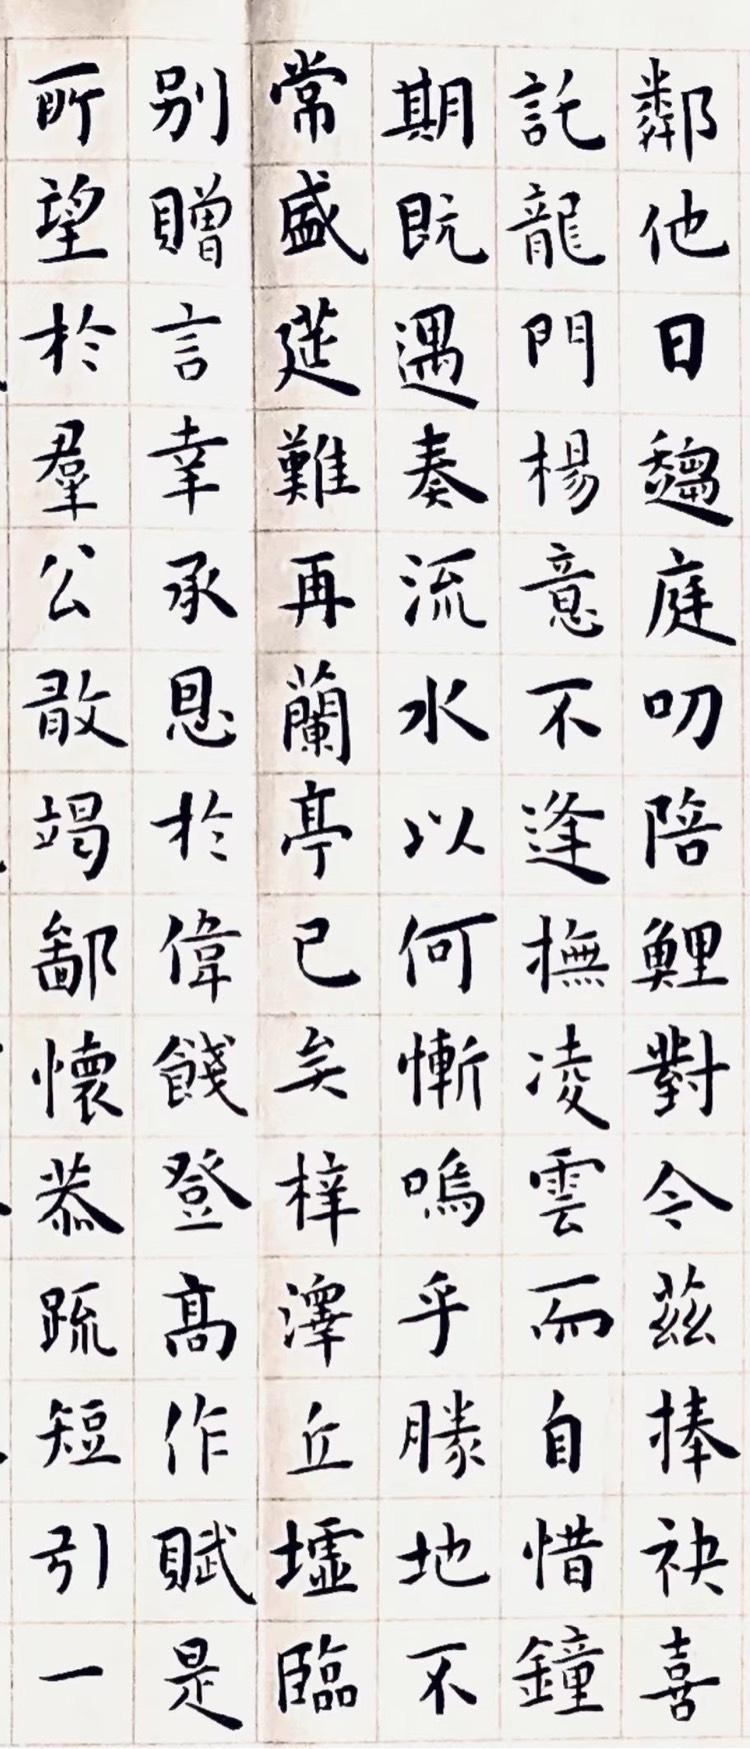 鄰他日趨庭叨陪鯉對今茲捧袂喜
託龍門楊意不逢撫凌雲而自惜鐘
期既遇奏流水以何慚嗚乎勝地不
常盛莚難再蘭亭已矣梓澤丘墟臨
別贈言幸承恩於偉餞登高作賦是
所望於羣公敢竭鄙懷恭疏短引一